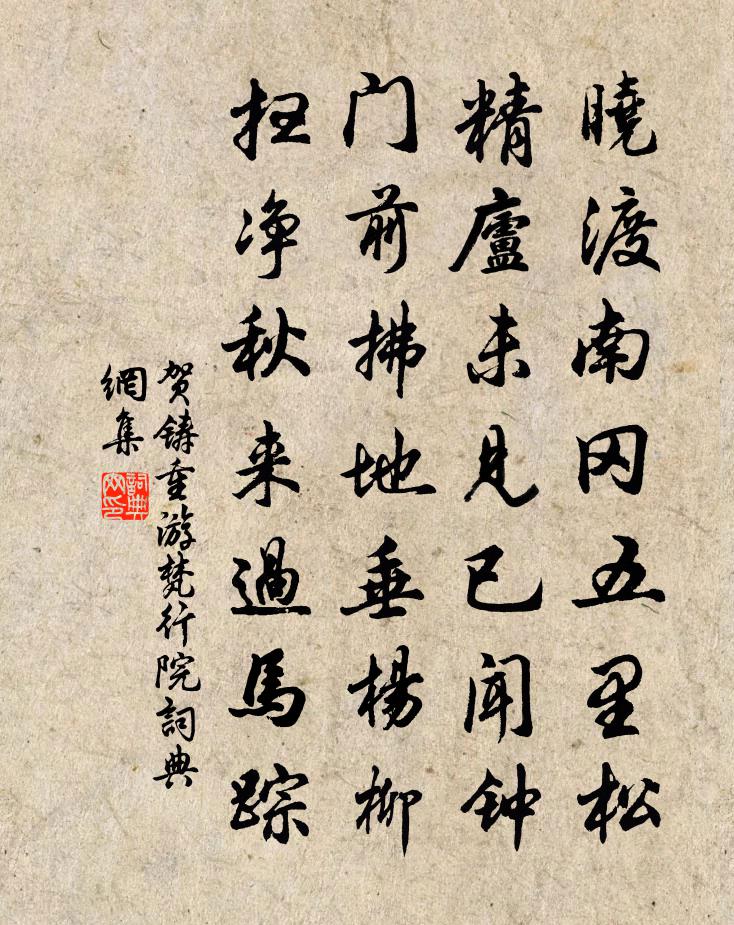 曉渡南冈五里松
精廬未见已闻钟
门前拂地垂楊柳
扫净秋来過馬踪
贺铸重游梵行院詞典
網集
詞典網印